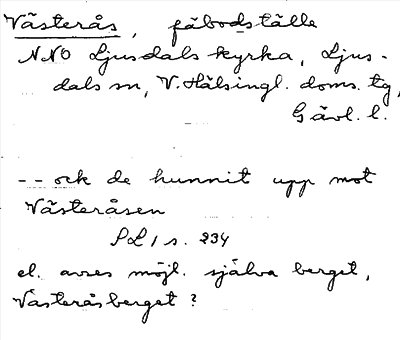 Västerås, fäbodställe
NNO Ljusdals kyrka, Ljus-
dals sn, V. Hälsingl. doms. tg,
Gävl. l.
-- ock de hunnit upp mot
Västeråsen
PL 1 s. 234
el. avses möjl. själva berget,
Västeråsberget?